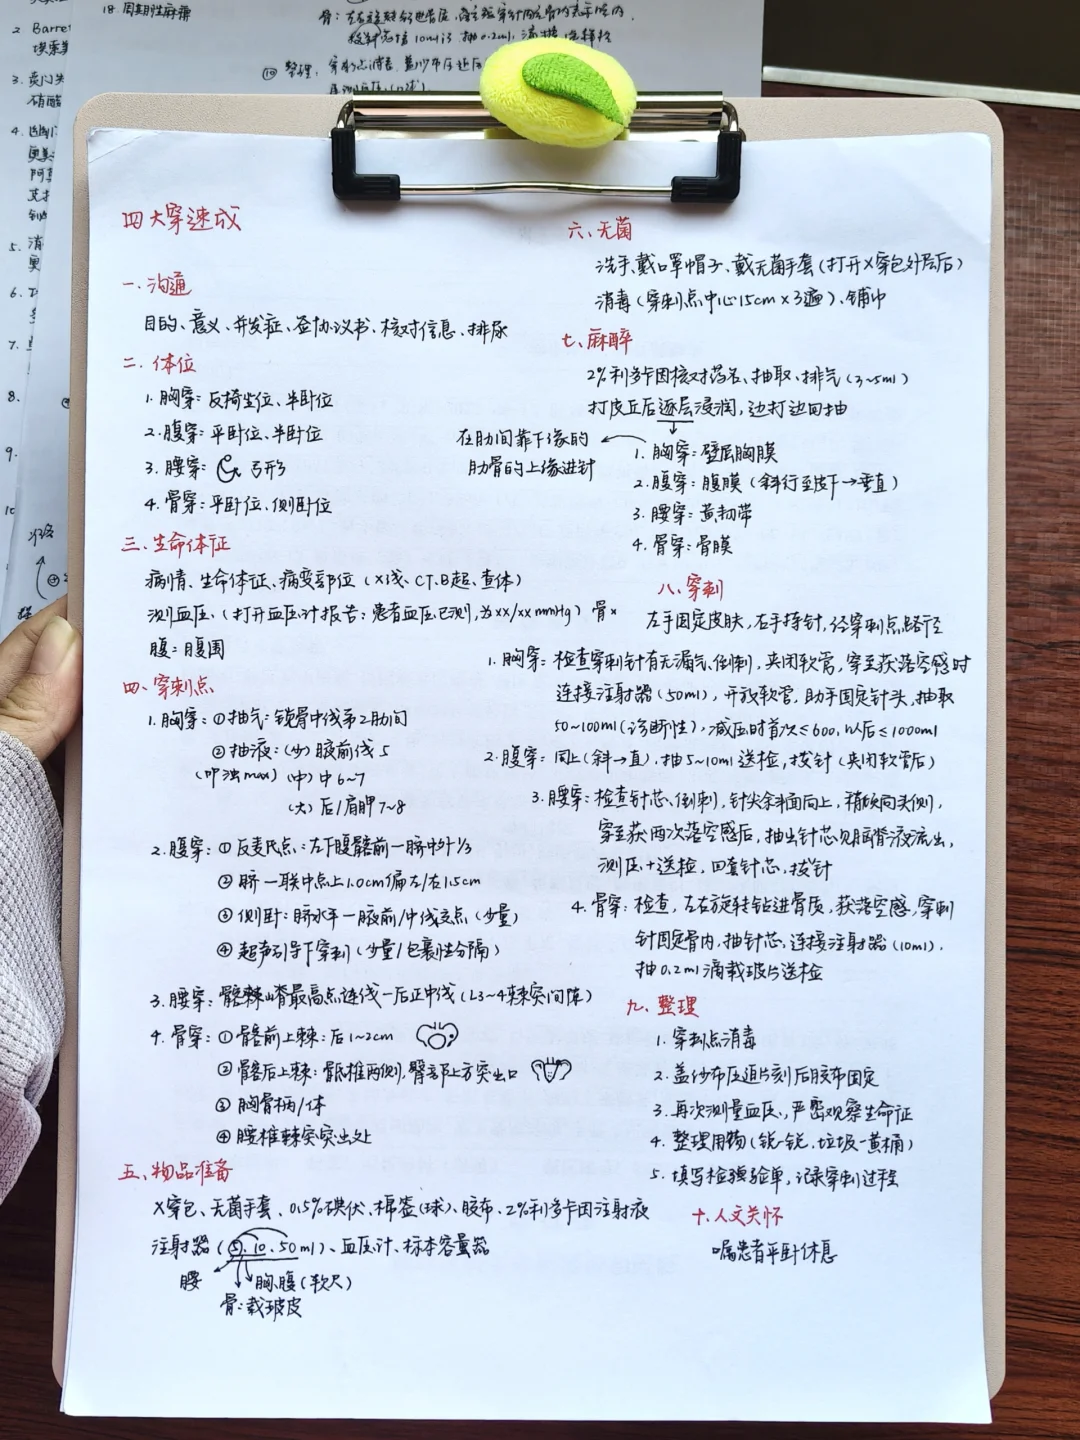 18. 周期性麻痹
2 Barret
3. 贲门失
硝酸
4.
奥美
阿莫
克拉
5. 消
6.
7.
8.
9.
四大穿速成
一.沟通
目的、意义、并发症、签协议书、核对信息、排尿
二.体位
1.胸穿:反椅坐位、半卧位
2.腹穿:平卧位、半卧位
3.腰穿: 弓形
4.骨穿:平卧位、侧卧位
三、生命体征
病情、生命体征、病变部位(X线、CT、B超、查体)
测血压、(打开血压计报告:患者血压已测,为xx/xx mmHg) 骨x
腹:腹围
四、穿刺点
1.胸穿:①抽气:锁骨中线第2肋间
②抽液:(少)腋前线5
(叩浊max) (中)中6~7
(大)后/肩胛7~8
2.腹穿:①反麦氏点:左下腹髂前一脐中外1/3
②脐一联中点上1.0cm偏左/右1.5cm
③侧卧:脐水平一腋前/中线交点(少量)
④超声引导下穿刺(少量/包裹性分隔)
3.腰穿:髂棘嵴最高点连线一后正中线(L3~4棘突间隙)
4.骨穿:①髂前上棘:后1~2cm
②髂后上棘:骶椎两侧,臀部上方突出口
③胸骨柄/体
④腰椎棘突突出处
五、物品准备
X穿包、无菌手套、0.5%碘伏、棉签(球)、胶布、2%利多卡因注射液
注射器(5、10、50ml)、血压计、标本容量器
腰 胸腹(软尺)
骨:载玻皮
六、无菌
洗手、戴口罩帽子、戴无菌手套(打开X穿包外层后)
消毒(穿刺点中心15cm×3遍)、铺巾
七、麻醉
2%利多卡因核对药名、抽取、排气(3~5ml)
打皮丘后逐层浸润,边打边回抽
在肋间靠下缘的
肋骨的上缘进针
1.胸穿:壁层胸膜
2.腹穿:腹膜(斜行至皮下→垂直)
3.腰穿:黄韧带
4.骨穿:骨膜
八、穿刺
左手固定皮肤,右手持针,经穿刺点路径
1.胸穿:检查穿刺针有无漏气、倒刺,夹闭软管,穿至获落空感时
连接注射器(50ml),开放软管,助手固定针头,抽取
50~100ml(诊断性),减压时首次≤600,以后≤1000ml
2.腹穿:同上(斜→直),抽5~10ml送检,拔针(夹闭软管后)
3.腰穿:检查针芯、倒刺,针尖斜面向上,稍倾向头侧,
穿至获两次落空感后,抽出针芯见脑脊液流出,
测压+送检,回套针芯,拔针
4.骨穿:检查,左右旋转钻进骨质,获落空感,穿刺
针固定骨内,抽针芯,连接注射器(10ml),
抽0.2ml滴载玻片送检
九、整理
1.穿刺点消毒
2.盖纱布压迫片刻后胶布固定
3.再次测量血压、严密观察生命征
4.整理用物(锐-锐,垃圾-黄桶)
5.填写检验验单,记录穿刺过程
十、人文关怀
嘱患者平卧休息